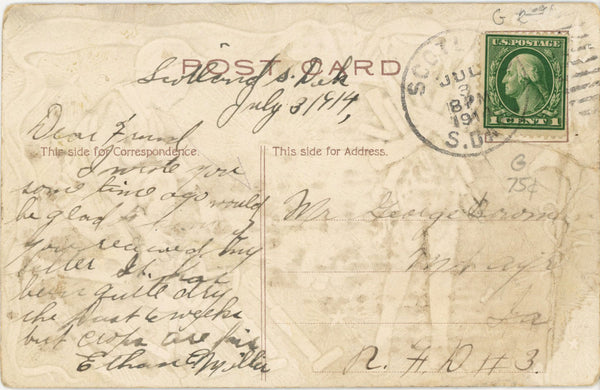 G
POST CARD
U.S. POSTAGE
1 CENT 1
SCOTL
JUL
3
8 PM
191
S.DAK
Scotland S. Dak
July 3, 1914,
Dear Friend
This side for Correspondence.
I wrote you
some time ago would
be glad
you received my
letter It has
been quite dry
the past 6 weeks
but crops are fair
Ethan Miller
This side for Address.
G
75¢
Mr. George
Mt. Ayr
Ia
R. F. D # 3.